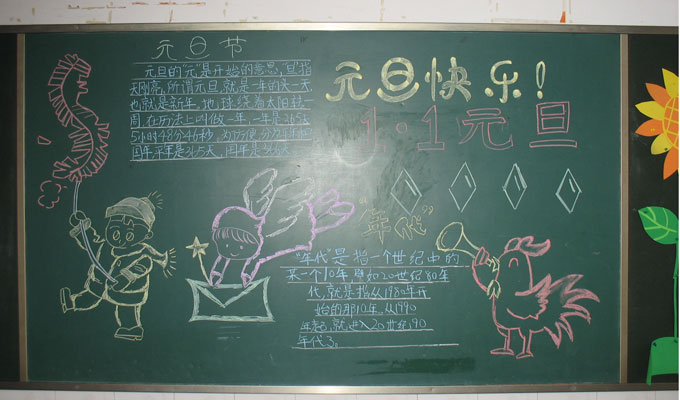 元旦节
元旦的"元"是开始的意思，旦指
天刚亮，所谓元旦就是一年的头一天
也就是新年，地球绕着太阳转一
周，在历法上叫做一年，一年是365天
5小时48分46秒，为方便分为平年和
闰年平年是365天，闰年是366天
元旦快乐！
1·1元旦
"年代"
"年代"是指一个世纪中的
某一个10年 譬如20世纪80年
代，就是指从1980年开
始的那10年。从1990
年起，就进入20世纪90
年代了。